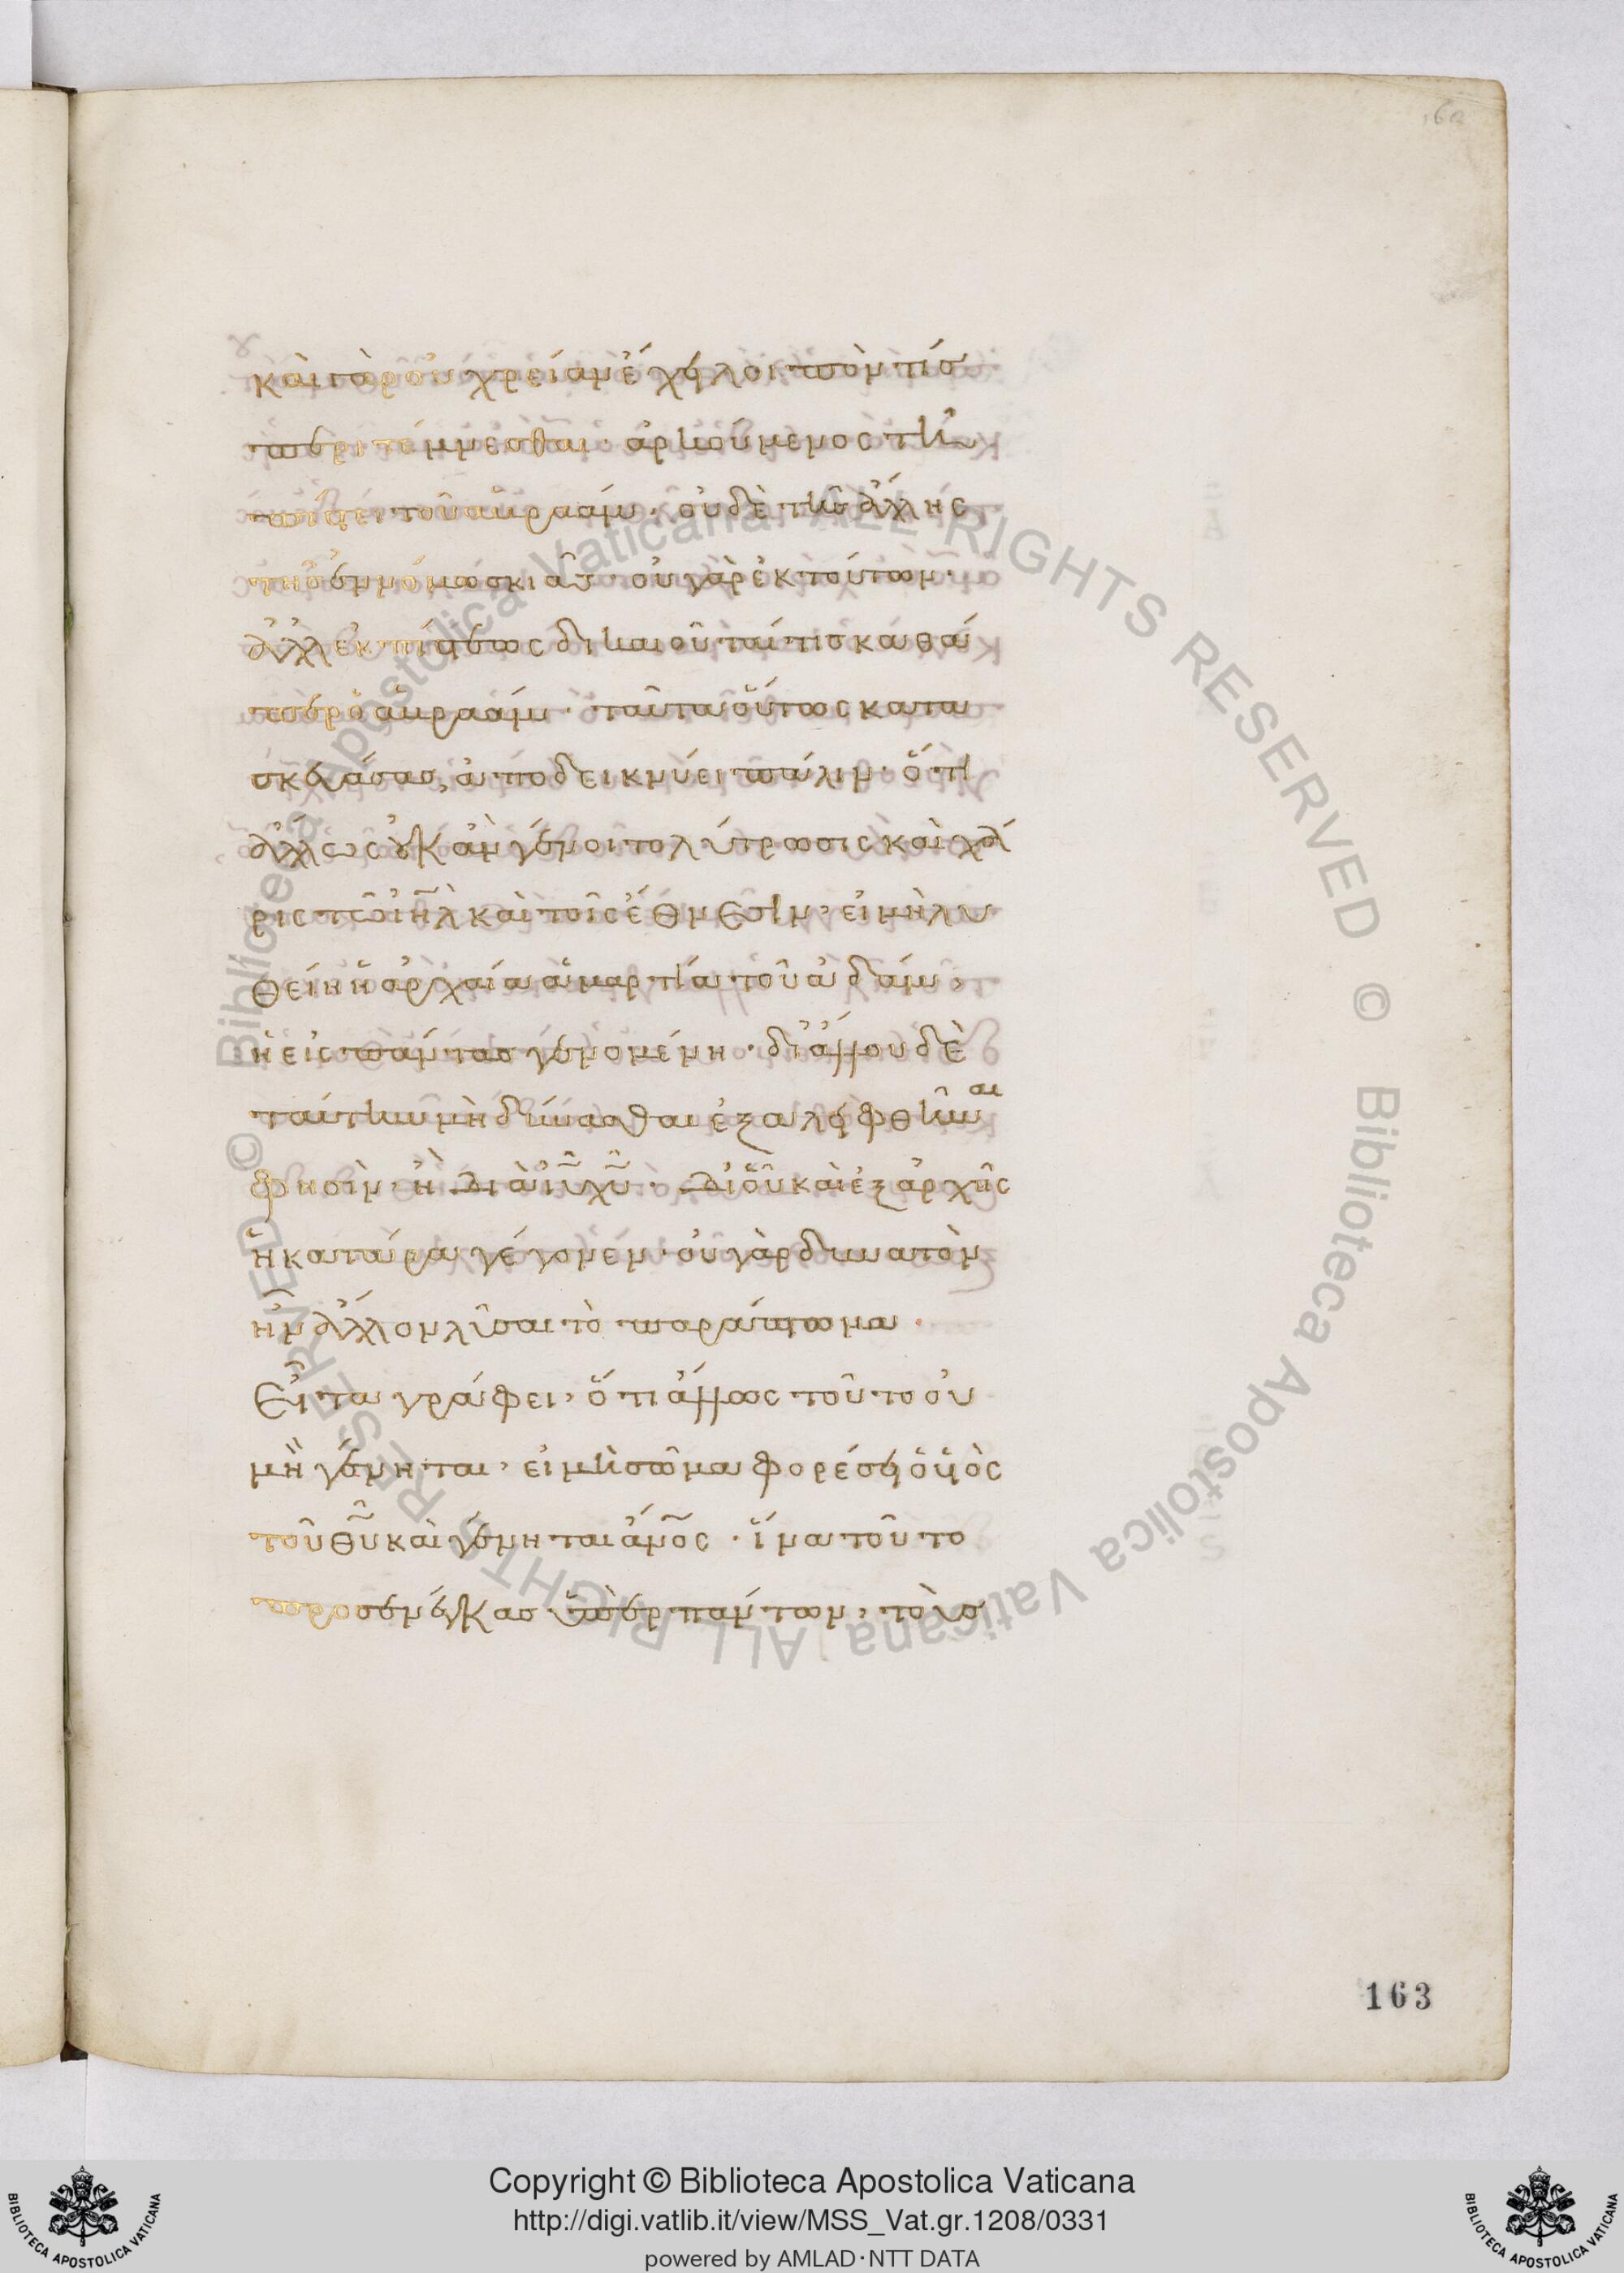 καὶ γὰρ οὐ χρείαν ἔχει λοιπὸν τίς
περιτέμνεσθαι· ἀρκούμενος τῆ
πίστει τοῦ ἀβραάμ· οὐδὲ τῆς ἄλλης
τῆς ἐννόμου σκιᾶς· οὐ γὰρ ἐκ τούτων·
ἀλλ' ἐκ πίστεως δικαιοῦταί τις καθά
περ ὁ ἀβραάμ· ταῦτα οὕτως κατα
σκευάσας, ἀποδείκνύει πάλιν· ὅτι
ἄλλως οὐκ ἂν γένοιτο λύτρωσις καὶ χά
ρις τῶ ἰηλ καὶ τοῖς ἔθνεσιν, εἰ μὴ λυ
θείη ἡ ἀρχαία ἁμαρτία τοῦ ἀδάμ,
ἡ εἰς πάντας γενομένη· δι' ἄλλου δὲ
ταύτην μὴ δύνασθαι ἐξαλειφθῆναι
φησὶν· ἢ διὰ ἰυ χυ· δι' οὗ καὶ ἐξ ἀρχῆς
ἡ κατάρα γέγονεν· οὐ γὰρ δυνατὸν
ἦν ἄλλον λῦσαι τὸ παράπτωμα·
Εἶτα γράφει, ὅτι ἄλλως τοῦτο οὐ
μὴ γένηται, εἰ μὴ σῶμα φορέσει ὁ υἱὸς
τοῦ θυ καὶ γένηται ανος· ἵνα τοῦτο
προσενέγκας ὑπὲρ πάντων, τοὺς
163
Copyright © Biblioteca Apostolica Vaticana
http://digi.vatlib.it/view/MSS_Vat.gr.1208/0331
powered by AMLAD·NTT DATA
BIBLIOTECA APOSTOLICA VATICANA
BIBLIOTECA APOSTOLICA VATICANA
© Biblioteca Apostolica Vaticana ALL RIGHTS RESERVED © Biblioteca Apostolica Vaticana ALL RIGHTS RESERVED